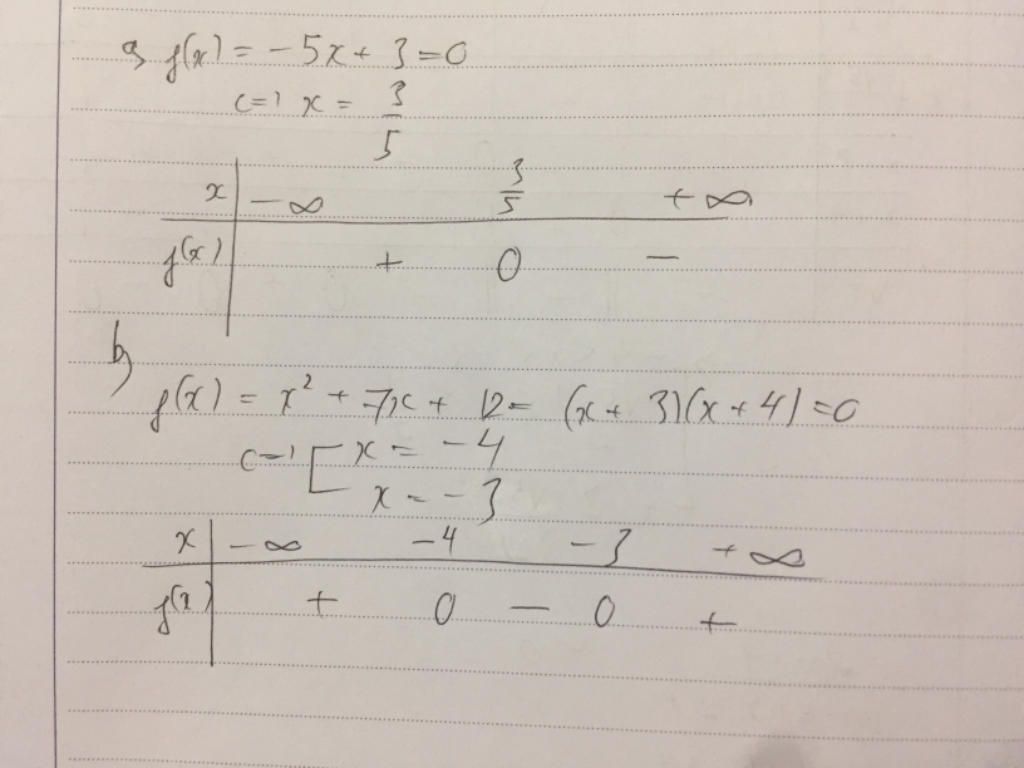 a, f(x) = -5x + 3 = 0
<=> x = 3/5
x | -∞ 3/5 +∞
f(x) | + 0 -
b,
f(x) = x² + 7x + 12 = (x + 3)(x + 4) = 0
<=> [ x = -4
x = -3
x | -∞ -4 -3 +∞
f(x) | + 0 - 0 +